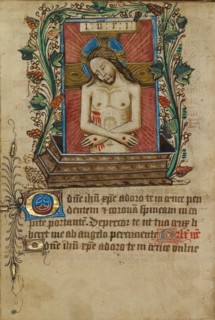 I N R I
O dñe ihu xp̄e adoro te in cruce pen
dentem et coronā spineam in ca
pite portantē. Deprecor te ut tua crux li
beret me ab angelo percutiente
O dñe ihu xp̄e adoro te in cruce